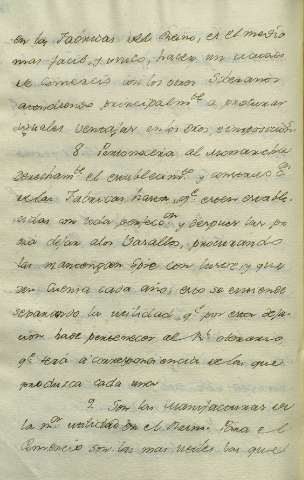 en las Fabricas del Reino, es el medio
mas facil, y unico, hacer un
de comercio con los otros Soberanos
atendiendo principalmte a procurar
iguales ventajas en los
8. Pertenecera al Monarcha
derechamte el establecimto y
de las Fabricas hasta qe esten estable-
cidas con toda perfecon y despues las po-
dra dejar a los Vasallos, procurando
las mantengan spre con lustre, y que
den cuenta cada año; esto se entiende
separando la utilidad, qe por esta
cion hade pertenecer al Rl
qe sera a correspondiencia de la que
produzca cada una
9. Son las manufacturas de
la mor utilidad en el Reino. Para el
Comercio son las mas utiles las que